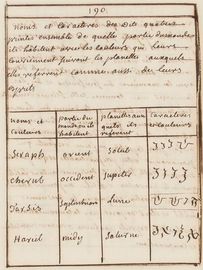 190.
noms et Caractères des Dit quatres
princes ensemble de quelle partie du monde
ils habitent avec les couleurs qui leurs
conviennent suivant les planettes auxquels
elle referrent comme aussi de leurs
esprits
noms et Couleurs partie du monde ou ils habitent planettes aux quels ils referrent Caracteres et couleurs
Seraph orient Soleil
Cherub occident Jupiter
Tarsis Septentrion Lune
Hariel midy Saturne